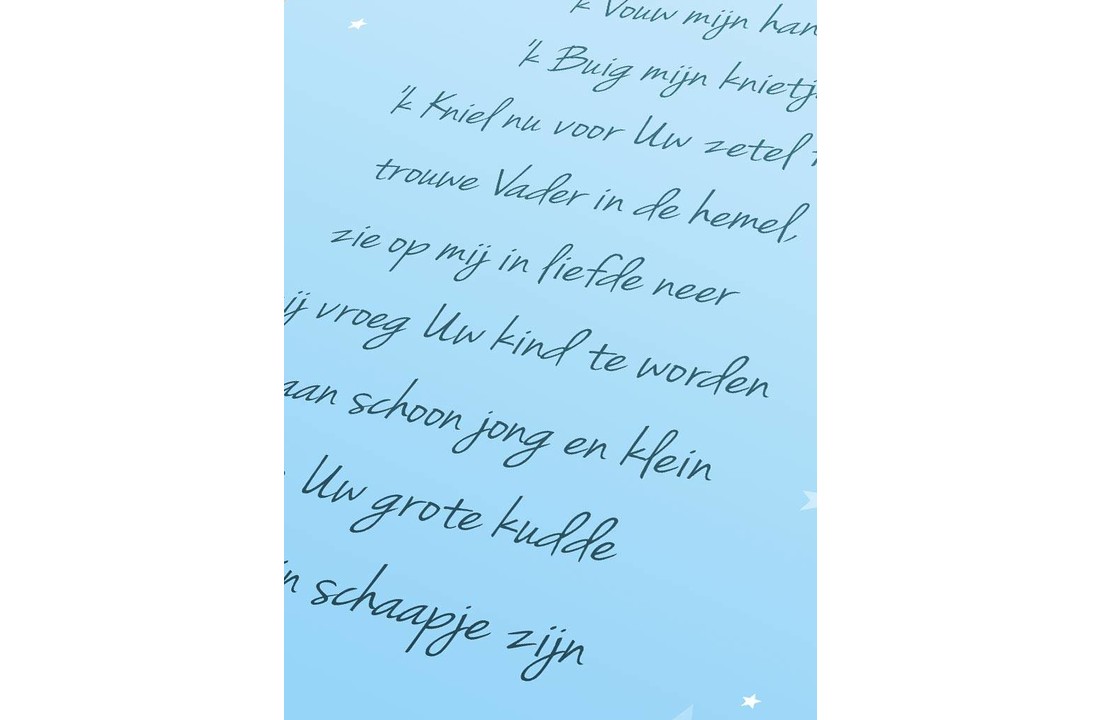 'k Vouw mijn
'k Buig mijn
'k Kniel nu voor Uw zetel
trouwe Vader in de hemel,
zie op mij in liefde neer
vroeg Uw kind te worden
schoon jong en klein
Uw grote kudde
schaapje zijn